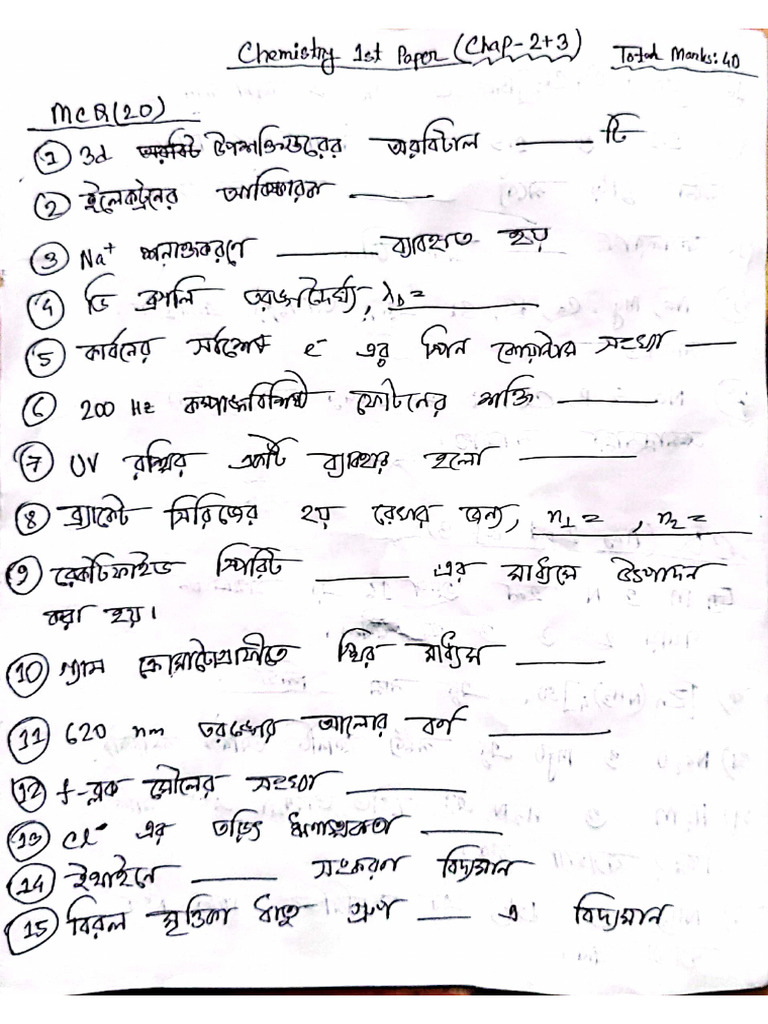 Chemistry 1st Paper (Chap-2+3) Total Marks: 40
MCQ(20)
① 3d উপশক্তিস্তরের অরবিটাল ____ টি
② ইলেকট্রনের আবিষ্কারক ____
③ Na⁺ শনাক্তকরণে ____ ব্যবহৃত হয়
④ ডি ব্রগলি তরঙ্গদৈর্ঘ্য, λD = ____
⑤ কার্বনের সর্বশেষ e⁻ এর স্পিন কোয়ান্টাম সংখ্যা ____
⑥ 200 Hz কম্পাঙ্কবিশিষ্ট ফোটনের শক্তি ____
⑦ UV রশ্মির একটি ব্যবহার হলো ____
⑧ ব্র্যাকেট সিরিজের হয় রেখার জন্য, n₁ = , n₂ =
⑨ রেকটিফাইড স্পিরিট ____ এর মাধ্যমে উৎপাদন
করা হয়।
⑩ গ্যাস ক্রোমাটোগ্রাফীতে স্থির মাধ্যম ____
⑪ 620 nm তরঙ্গের আলোর বর্ণ ____
⑫ f-ব্লক মৌলের সংখ্যা ____
⑬ Cl এর তড়িৎ ঋণাত্মকতা ____
⑭ ইথাইনে ____ সংকরণ বিদ্যমান
⑮ বিরল মৃত্তিকা ধাতু গ্রুপ ____ এ বিদ্যমান